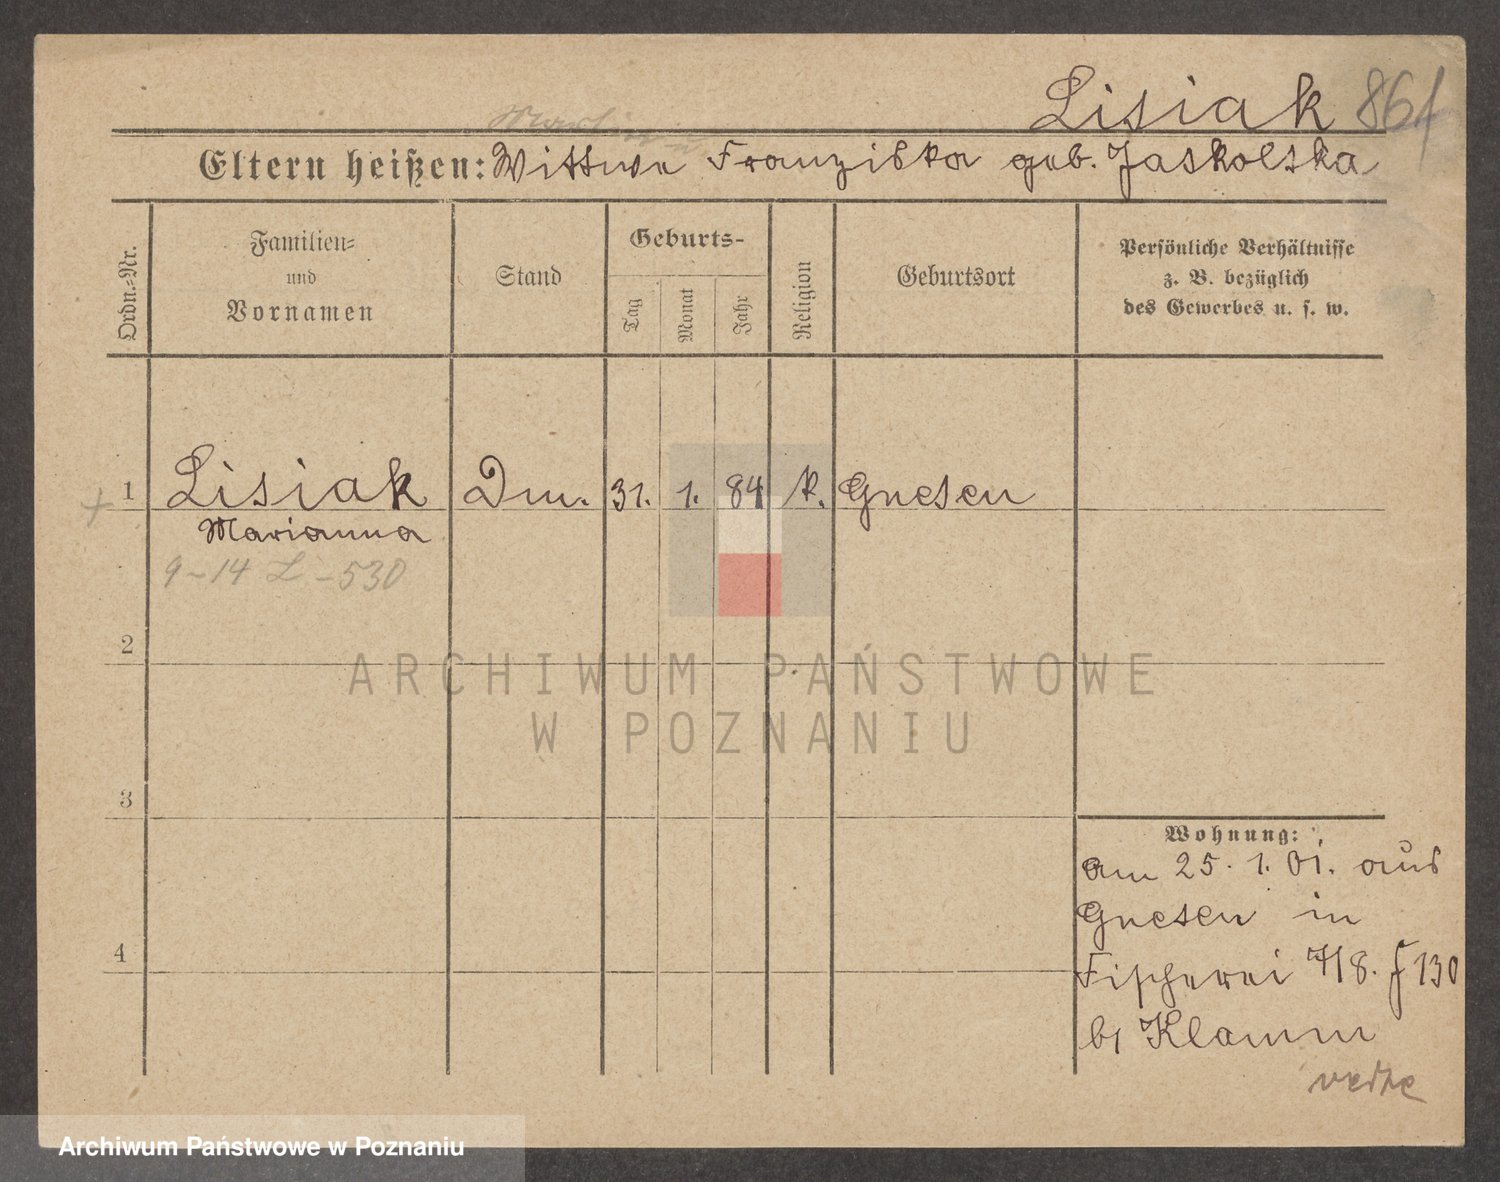 Lisiak 861
Eltern heißen: Wittwe Franziska geb. Jaskolska
Ordn.-Nr.
Familien-
und
Vornamen
Stand
Geburts-
Tag
Monat
Jahr
Religion
Geburtsort
Persönliche Verhältnisse
z. B. bezüglich
des Gewerbes u. s. w.
1 Lisiak Dm. 31. 1. 84 k. Gnesen
Marianna
9-14 L -530
2
3
4
Wohnung:
am 25. 1. 01. aus
Gnesen in
Fischerei 7/8. J 130
b/ Klamm
ARCHIWUM PAŃSTWOWE
W POZNANIU
Archiwum Państwowe w Poznaniu